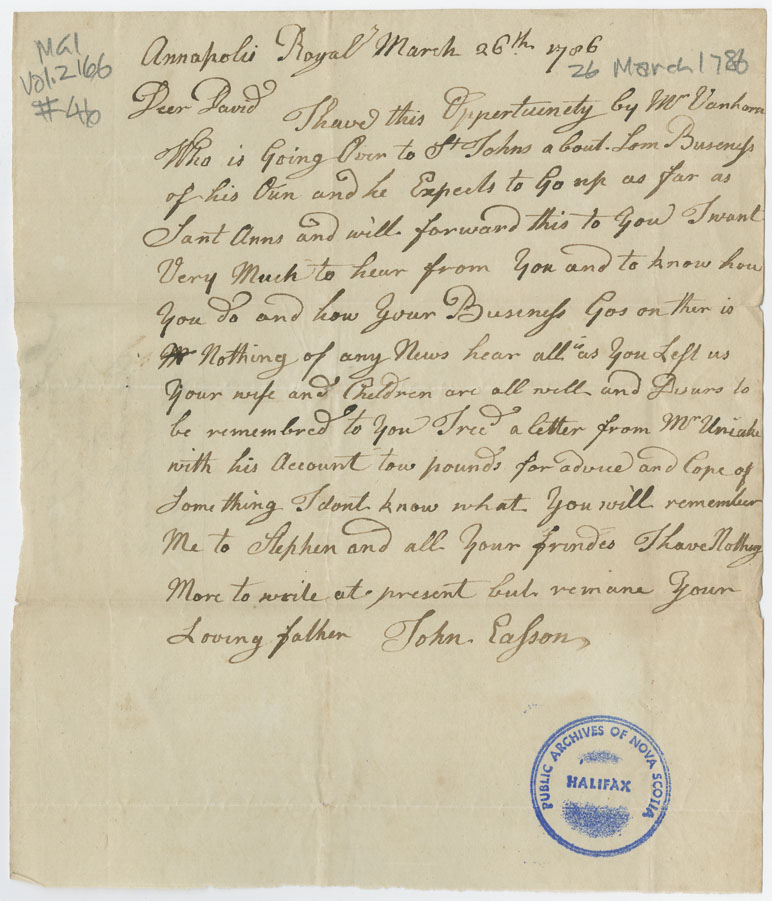 MG1
Vol. 2166
#46
Annapolis Royal March 26th 1786
26 March 1786
Deer David
I have this Oppertuinety by Mr Vanhorn
Who is Going Over to St Johns about Som Buseness
of his Oun and he Expects to Go up as far as
Sant Anns and will forward this to You I want
Very Much to hear from You and to know hou
You do and how Your Buseness Gos on ther is
Nothing of any News hear all is as You Left us
Your wife and Children are all well and Deurs to
be remembred to You I recd a letter from Mr Uniake
with his Account tow pounds for advice and Cope of
Something I dont know what You will remember
Me to Stephen and all Your frindes I have Nothing
More to write at present but remane Your
Loving father John Easson
PUBLIC ARCHIVES OF NOVA SCOTIA
HALIFAX